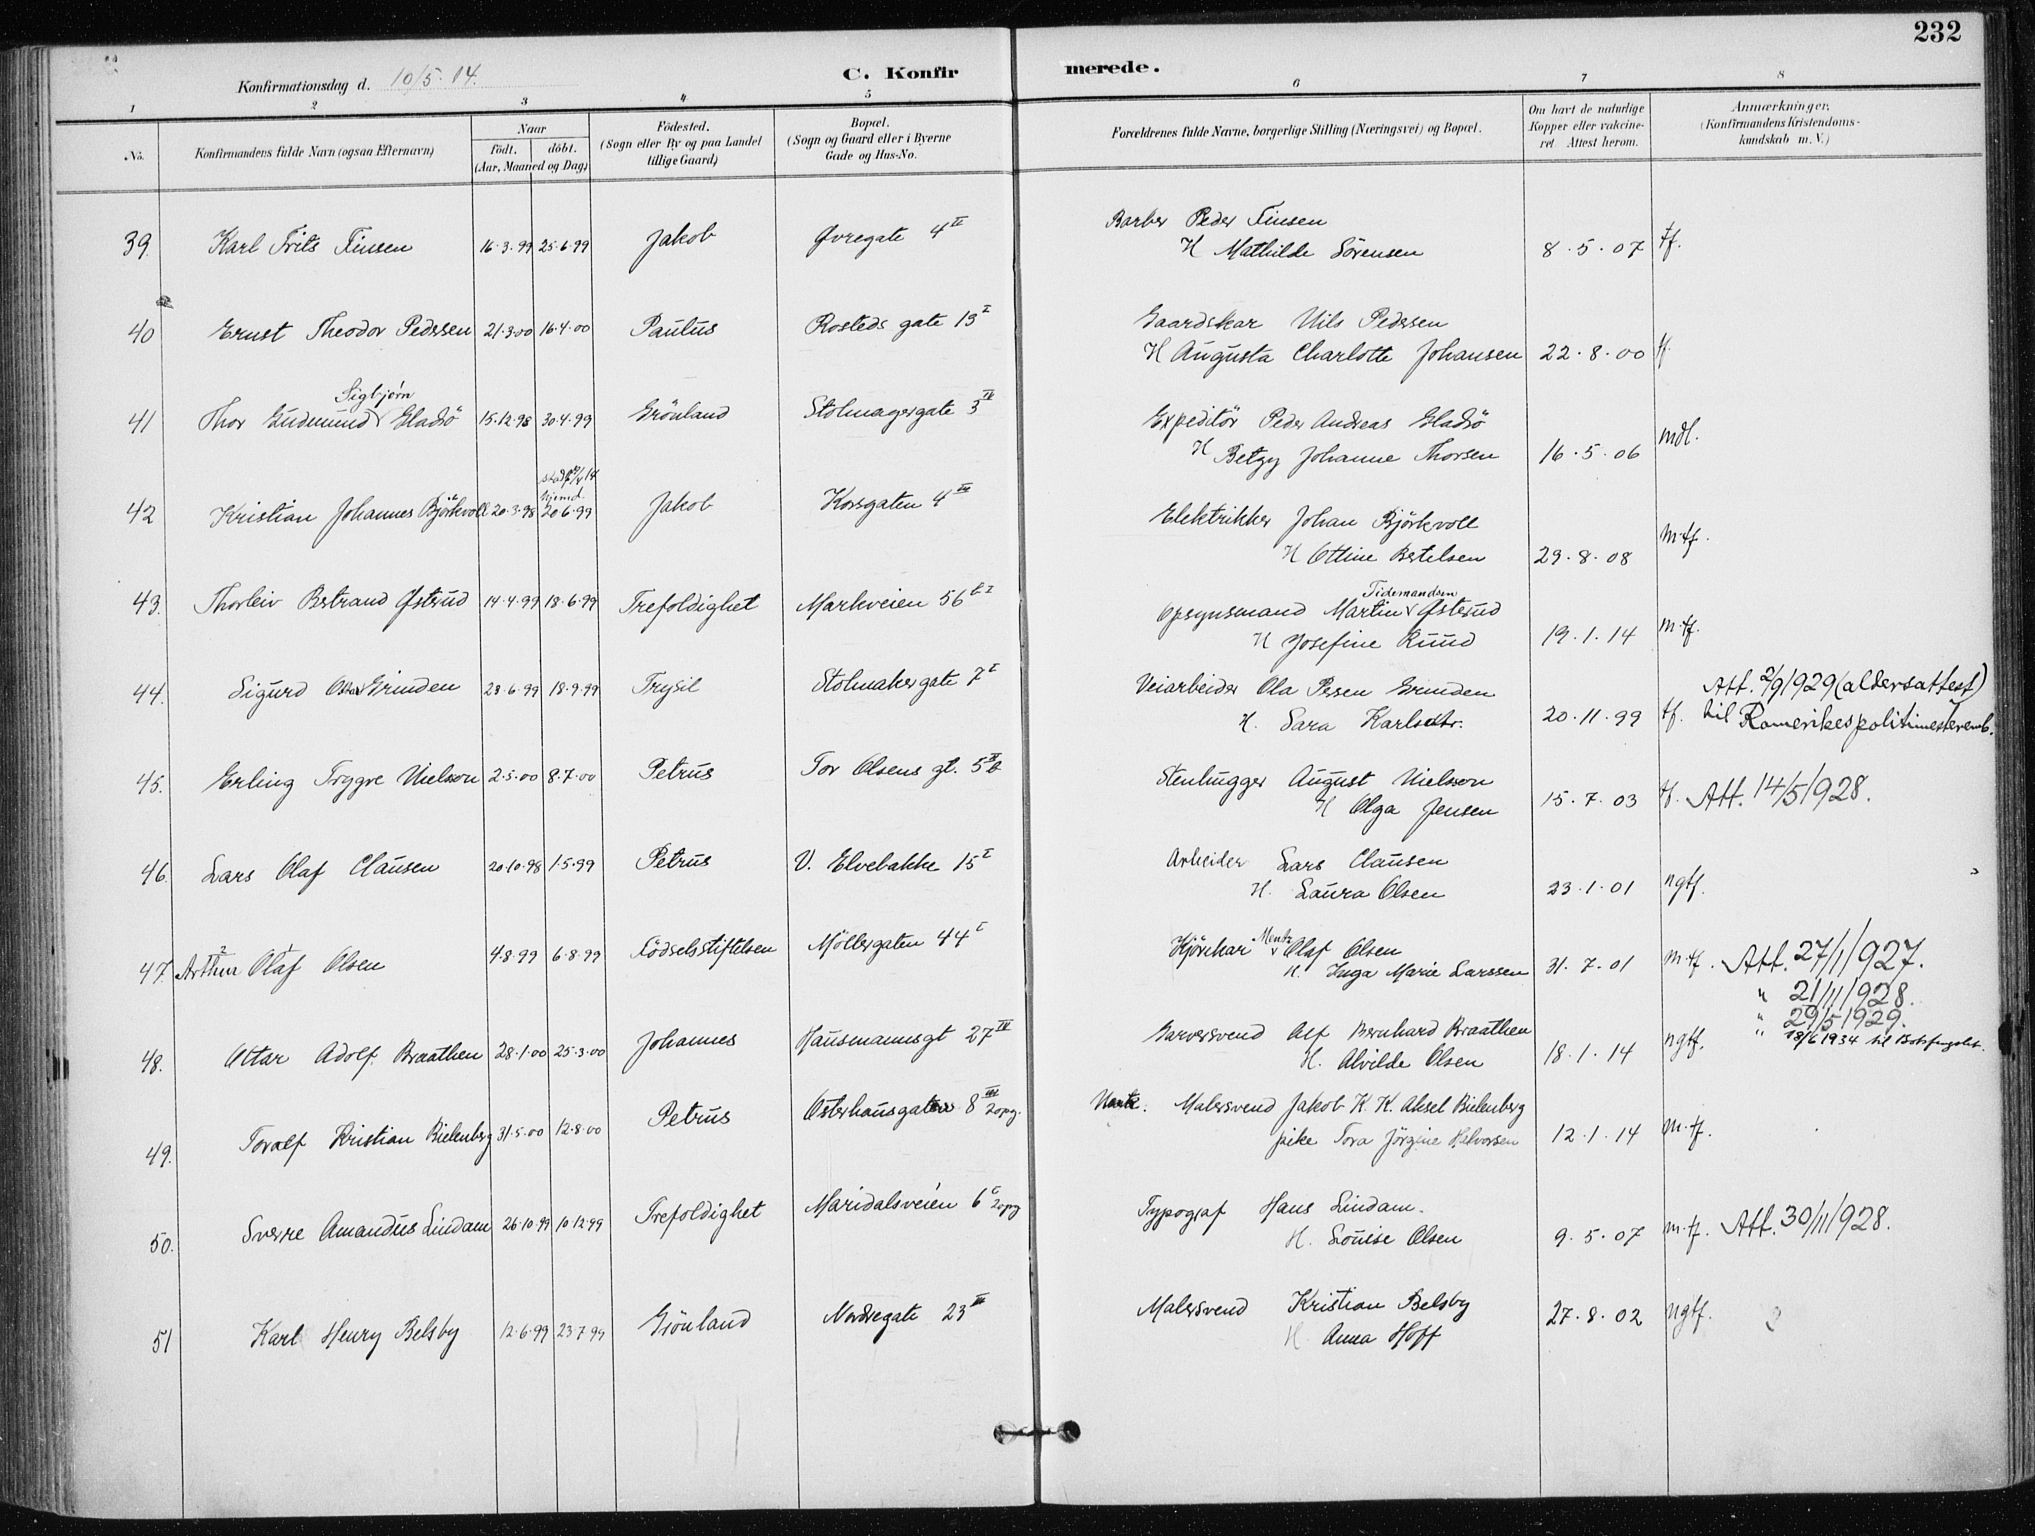 232
Konfirmationsdag d. 10/5 · 14.
C. Konfirmerede.
1 2 3 4 5 6 7 8
No.
Konfirmandens fulde Navn (ogsaa Efternavn)
Naar
födt. döbt.
(Aar, Maaned og Dag)
Födested.
(Sogn eller By og paa Landet
tillige Gaard)
Bopæl.
(Sogn og Gaard eller i Byerne
Gade og Hus-No.
Forældrenes fulde Navne, borgerlige Stilling (Næringsvei) og Bopæl.
Om havt de naturlige
Kopper eller vakcine-
ret Attest herom.
Anmærkninger.
(Konfirmandens Kristendoms-
kundskab m. V.)
39. Karl Frits Finsen 16·3·99 25·6·99 Jakob Øvregate 4 II Barber Peder Finsen
H Mathilde Sörensen 8·5·07 tf.
40 Ernst Theodor Pedersen 21·3·00 16·4·00 Paulus Rosteds gate 13 I Gaardskar Nils Pedersen
H Augusta Charlotte Johansen 22·8·00 tf.
Sigbjörn
41 Thor Gudmund v Gladsö 15·12·98 30·4·99 Grönland Stolmagergate 3 IV Expeditör Peder Andreas Gladsö
H Betzy Johanne Thorsen 16·5·06 mdl.
hjemd.
42 Kristian Johannes Björkvoll 20·3·98 20·6·99 Jakob Korsgaten 4 III Elektrikker Johan Björkvoll
H Ottine Bertelsen 29·8·08 m·tf.
43. Thorleiv Bertrand Østerud 14·4·99 18·6·99 Trefoldighet Markveien 56 b I Tidemandsen
Opsynsmand Martin v Østerud
H Josefine Ruud 19·1·14 m·tf.
44. Sigurd Olsen Grinden 23·6·99 18·9·99 Trysil Stolmakergate 7 I Veiarbeider Ola Persen Grinden
H. Sara Karlsdtr. 20·11·99 tf. Att. 2/9 1929 (aldersattest)
til Romerikes politimesteremb.
45. Erling Trygve Nielsen 2·5·00 8·7·00 Petrus Tor Olsens gt. 5 b Stenhugger August Nielsen
H Olga Jensen 15·7·03 tf. Att. 14/5 1928.
46. Lars Olaf Clausen 20·10·98 1·5·99 Petrus V. Elvebakke 15 I Arbeider Lars Clausen
H. Laura Olsen 23·1·01 ngtf.
47. Arthur Olaf Olsen 4·8·99 6·8·99 Födselsstiftelsen Möllergaten 44 I Kjörekar Mentz v Olaf Olsen
H. Inga Marie Larssen 31·7·01 m·tf. Att. 27/1 1927.
" 21/11 1928.
" 29/5 1929.
" 18/6 1934 til Botsfengslet.
48. Ottar Adolf Braathen 28·1·00 25·3·00 Johannes Hausmannsgt 27 IV Garversvend Alf Bernhard Braathen
H. Alvilde Olsen 18·1·14 ngtf.
49. Toralf Kristian Bielenberg 31·5·00 12·8·00 Petrus Osterhausgaten 8 III 2opg. Malersvend Jakob K. K. Aksel Bielenberg
pike Tora Jörgine Halvorsen 12·1·14 m·tf.
50. Sverre Amandus Lindam 26·10·99 10·12·99 Trefoldighet Maridalsveien 6 I 2opg Typograf Hans Lindam.
H. Louise Olsen 9·5·07 m·tf. Att. 30/11 1928.
51 Karl Henry Belsby 12·6·99 23·7·99 Grönland Nordregate 23 III Malersvend Kristian Belsby
H Anna Hoff 27·8·02 ngtf.